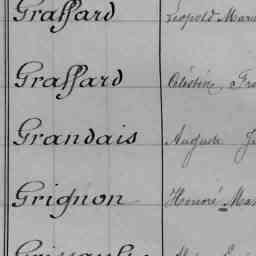 Graffard Léopold Marie
Graffard Célestine Fra
Grandais Auguste
Grignon Honoré Mar